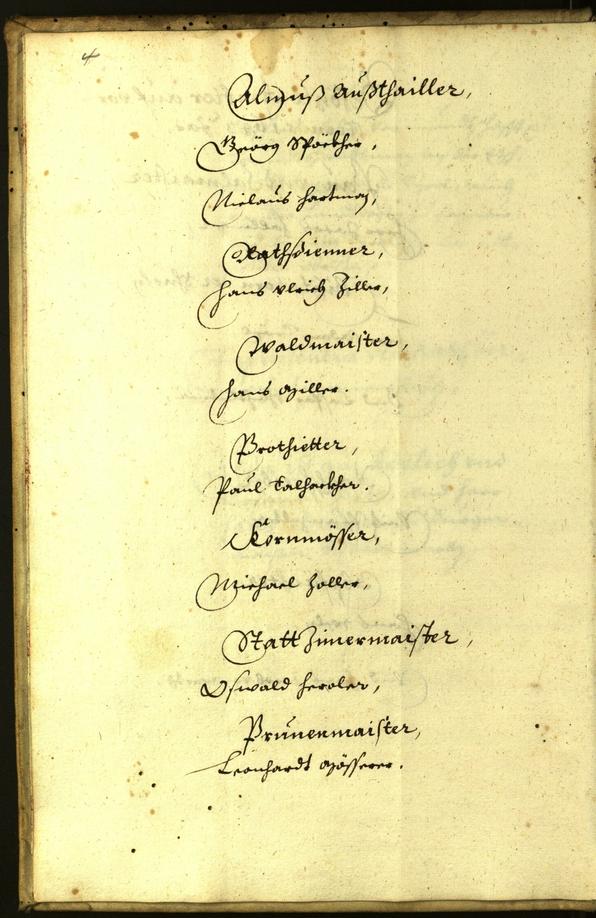 4
Almuß Außthailler,
Geörg Spöckher,
Niclaus hartman,
Rathsdienner,
hans Ulrich Ziller,
Waldmaister,
hans Miller.
Prothietter,
Paul Talhackher.
Kornmösser,
Michael Zoller,
Statt Zimermaister,
Oswald heroler,
Prunenmaister,
Leonhardt Mösserer.